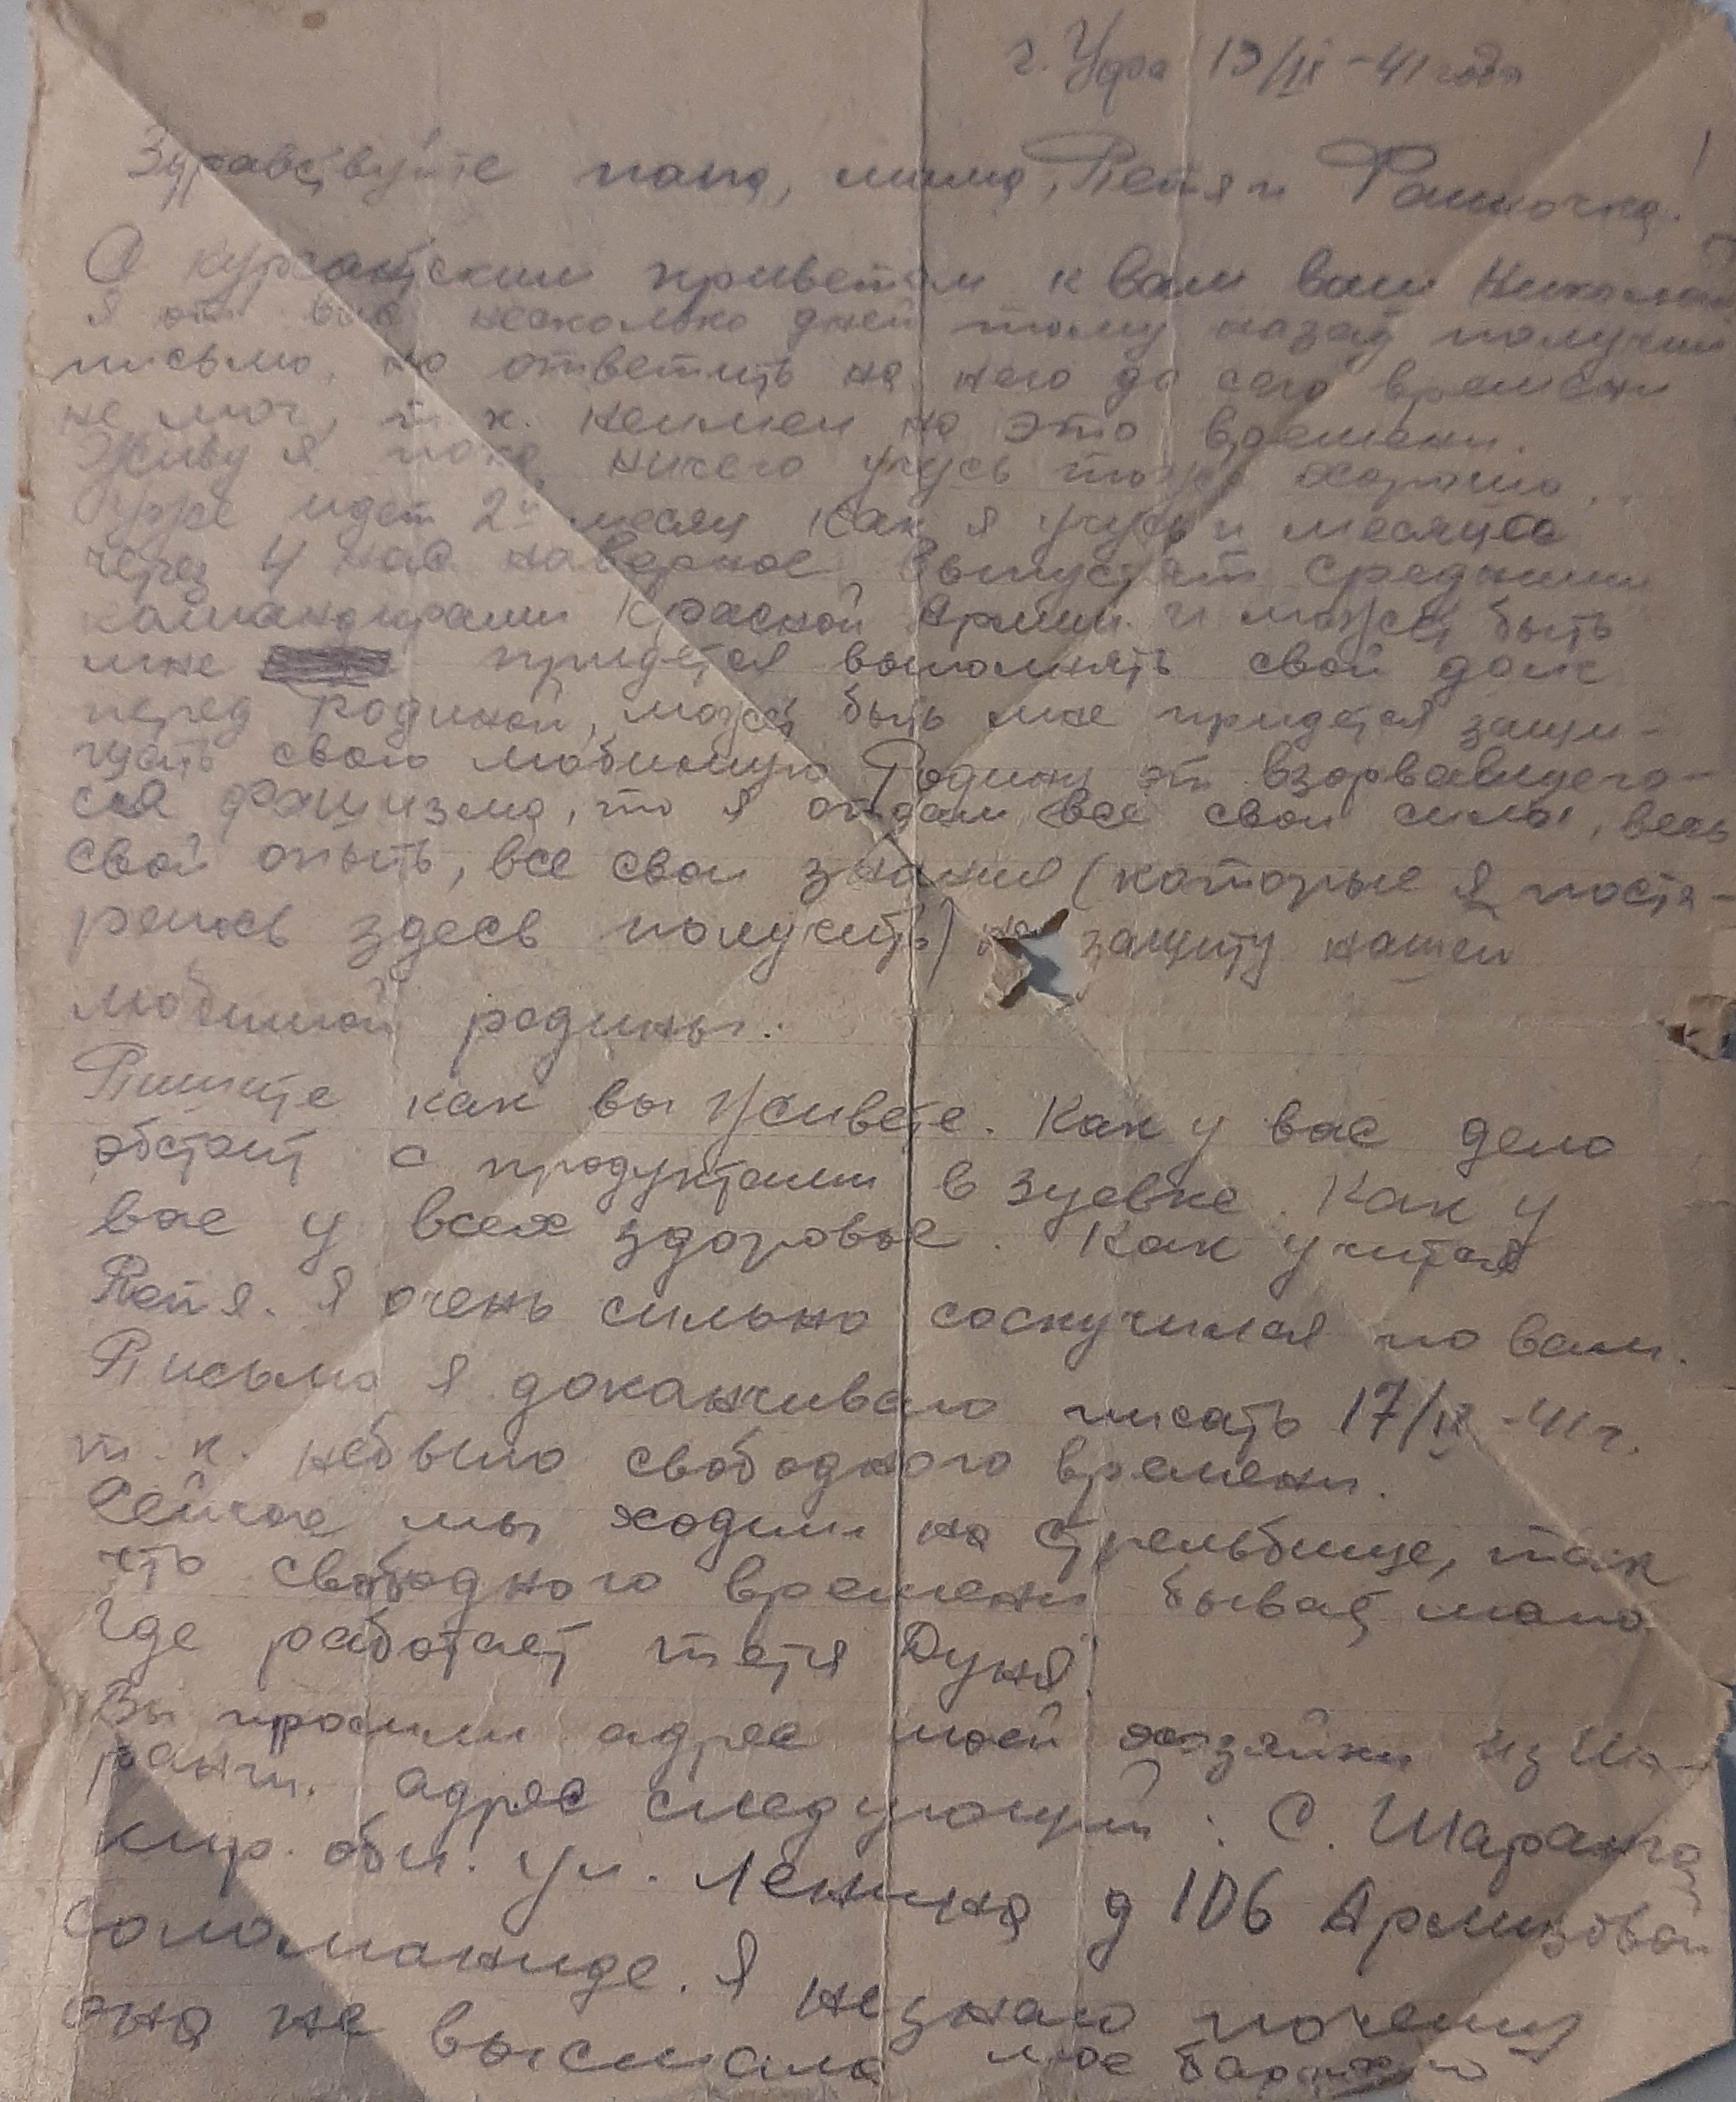 г. Уфа 13/IX - 41 года
Здравствуйте папа, мама, Петя и Фаиночка!
С курсантским приветом к вам ваш Николай
Я от вас несколько дней тому назад получил
письмо, но ответить на него до сего времени
не мог, т. к. неимел на это времени.
Живу я пока ничего учусь тоже хорошо.
Уже идет 2й месяц как я учусь и месяцев
через 4 нас наверное выпустят средними
командирами Красной Армии и может быть
мне придется выполнять свой долг
перед Родиной, может быть мне придется защи-
щать свою любимую Родину от взорвавшего-
ся фашизма, то я отдам все свои силы, весь
свой опыть, все свои знания (которые я поста-
раюсь здесь получить) на защиту нашей
любимой родины.
Пишите как вы живете. Как у вас дела
обстоят с продуктами в Зуевке. Как у
вас у всех здоровье. Как учится
Петя. Я очень сильно соскучился по вам.
Письмо я доканчиваю писать 17/IX - 41 г.
т. к. небыло свободного времени.
Сейчас мы ходим на стрельбище, так
что свободного времени бывает мало
Где работает тетя Дуня.
Вы просили адрес моей хозяйки из Ша-
ранги. адрес следующий: С. Шаранга
Кир. обл. ул. Ленина д 106
Соломаниде. Я незнаю почему
она не выслала мое